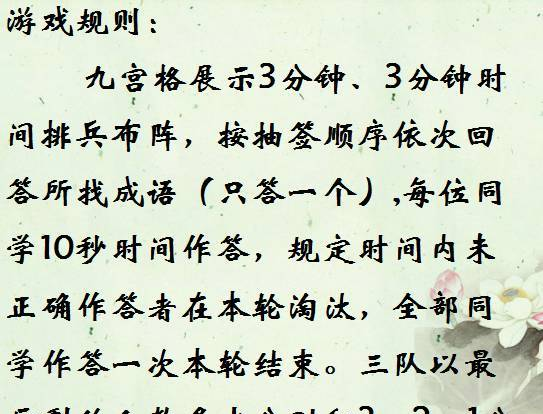 游戏规则：
九宫格展示3分钟、3分钟时
间排兵布阵，按抽签顺序依次回
答所找成语（只答一个）,每位同
学10秒时间作答，规定时间内未
正确作答者在本轮淘汰，全部同
学作答一次本轮结束。三队以最